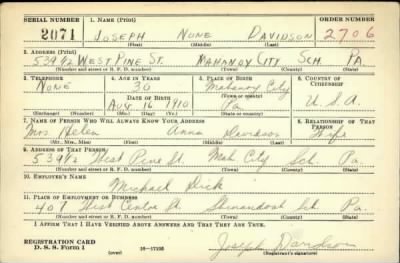 SERIAL NUMBER 1. NAME (Print) ORDER NUMBER
2071 JOSEPH None DAVIDSON 2706
(First) (Middle) (Last)
2. ADDRESS (Print)
539 1/2 WEST PINE ST. MAHANOY CITY SCH. PA.
(Number and street or R. F. D. number) (Town) (County) (State)
3. TELEPHONE 4. AGE IN YEARS 5. PLACE OF BIRTH 6. COUNTRY OF CITIZENSHIP
NONE 30 Mahanoy City
DATE OF BIRTH
AUG 16 1910 Pa. U.S.A.
(Exchange) (Number) (Mo.) (Day) (Yr.) (State or country)
7. NAME OF PERSON WHO WILL ALWAYS KNOW YOUR ADDRESS 8. RELATIONSHIP OF THAT PERSON
Mrs. Helen Anna Davidson Wife
(Mr., Mrs., Miss) (First) (Middle) (Last)
9. ADDRESS OF THAT PERSON
539 1/2 West Pine St. Mah City Sch. Pa.
(Number and street or R. F. D. number) (Town) (County) (State)
10. EMPLOYER'S NAME
Michael Dick
11. PLACE OF EMPLOYMENT OR BUSINESS
407 West Centre St. Shenandoah Sch. Pa.
(Number and street or R. F. D. number) (Town) (County) (State)
I AFFIRM THAT I HAVE VERIFIED ABOVE ANSWERS AND THAT THEY ARE TRUE.
REGISTRATION CARD
D. S. S. Form 1 (over) 16—17105 Joseph Davidson
(Registrant's signature)